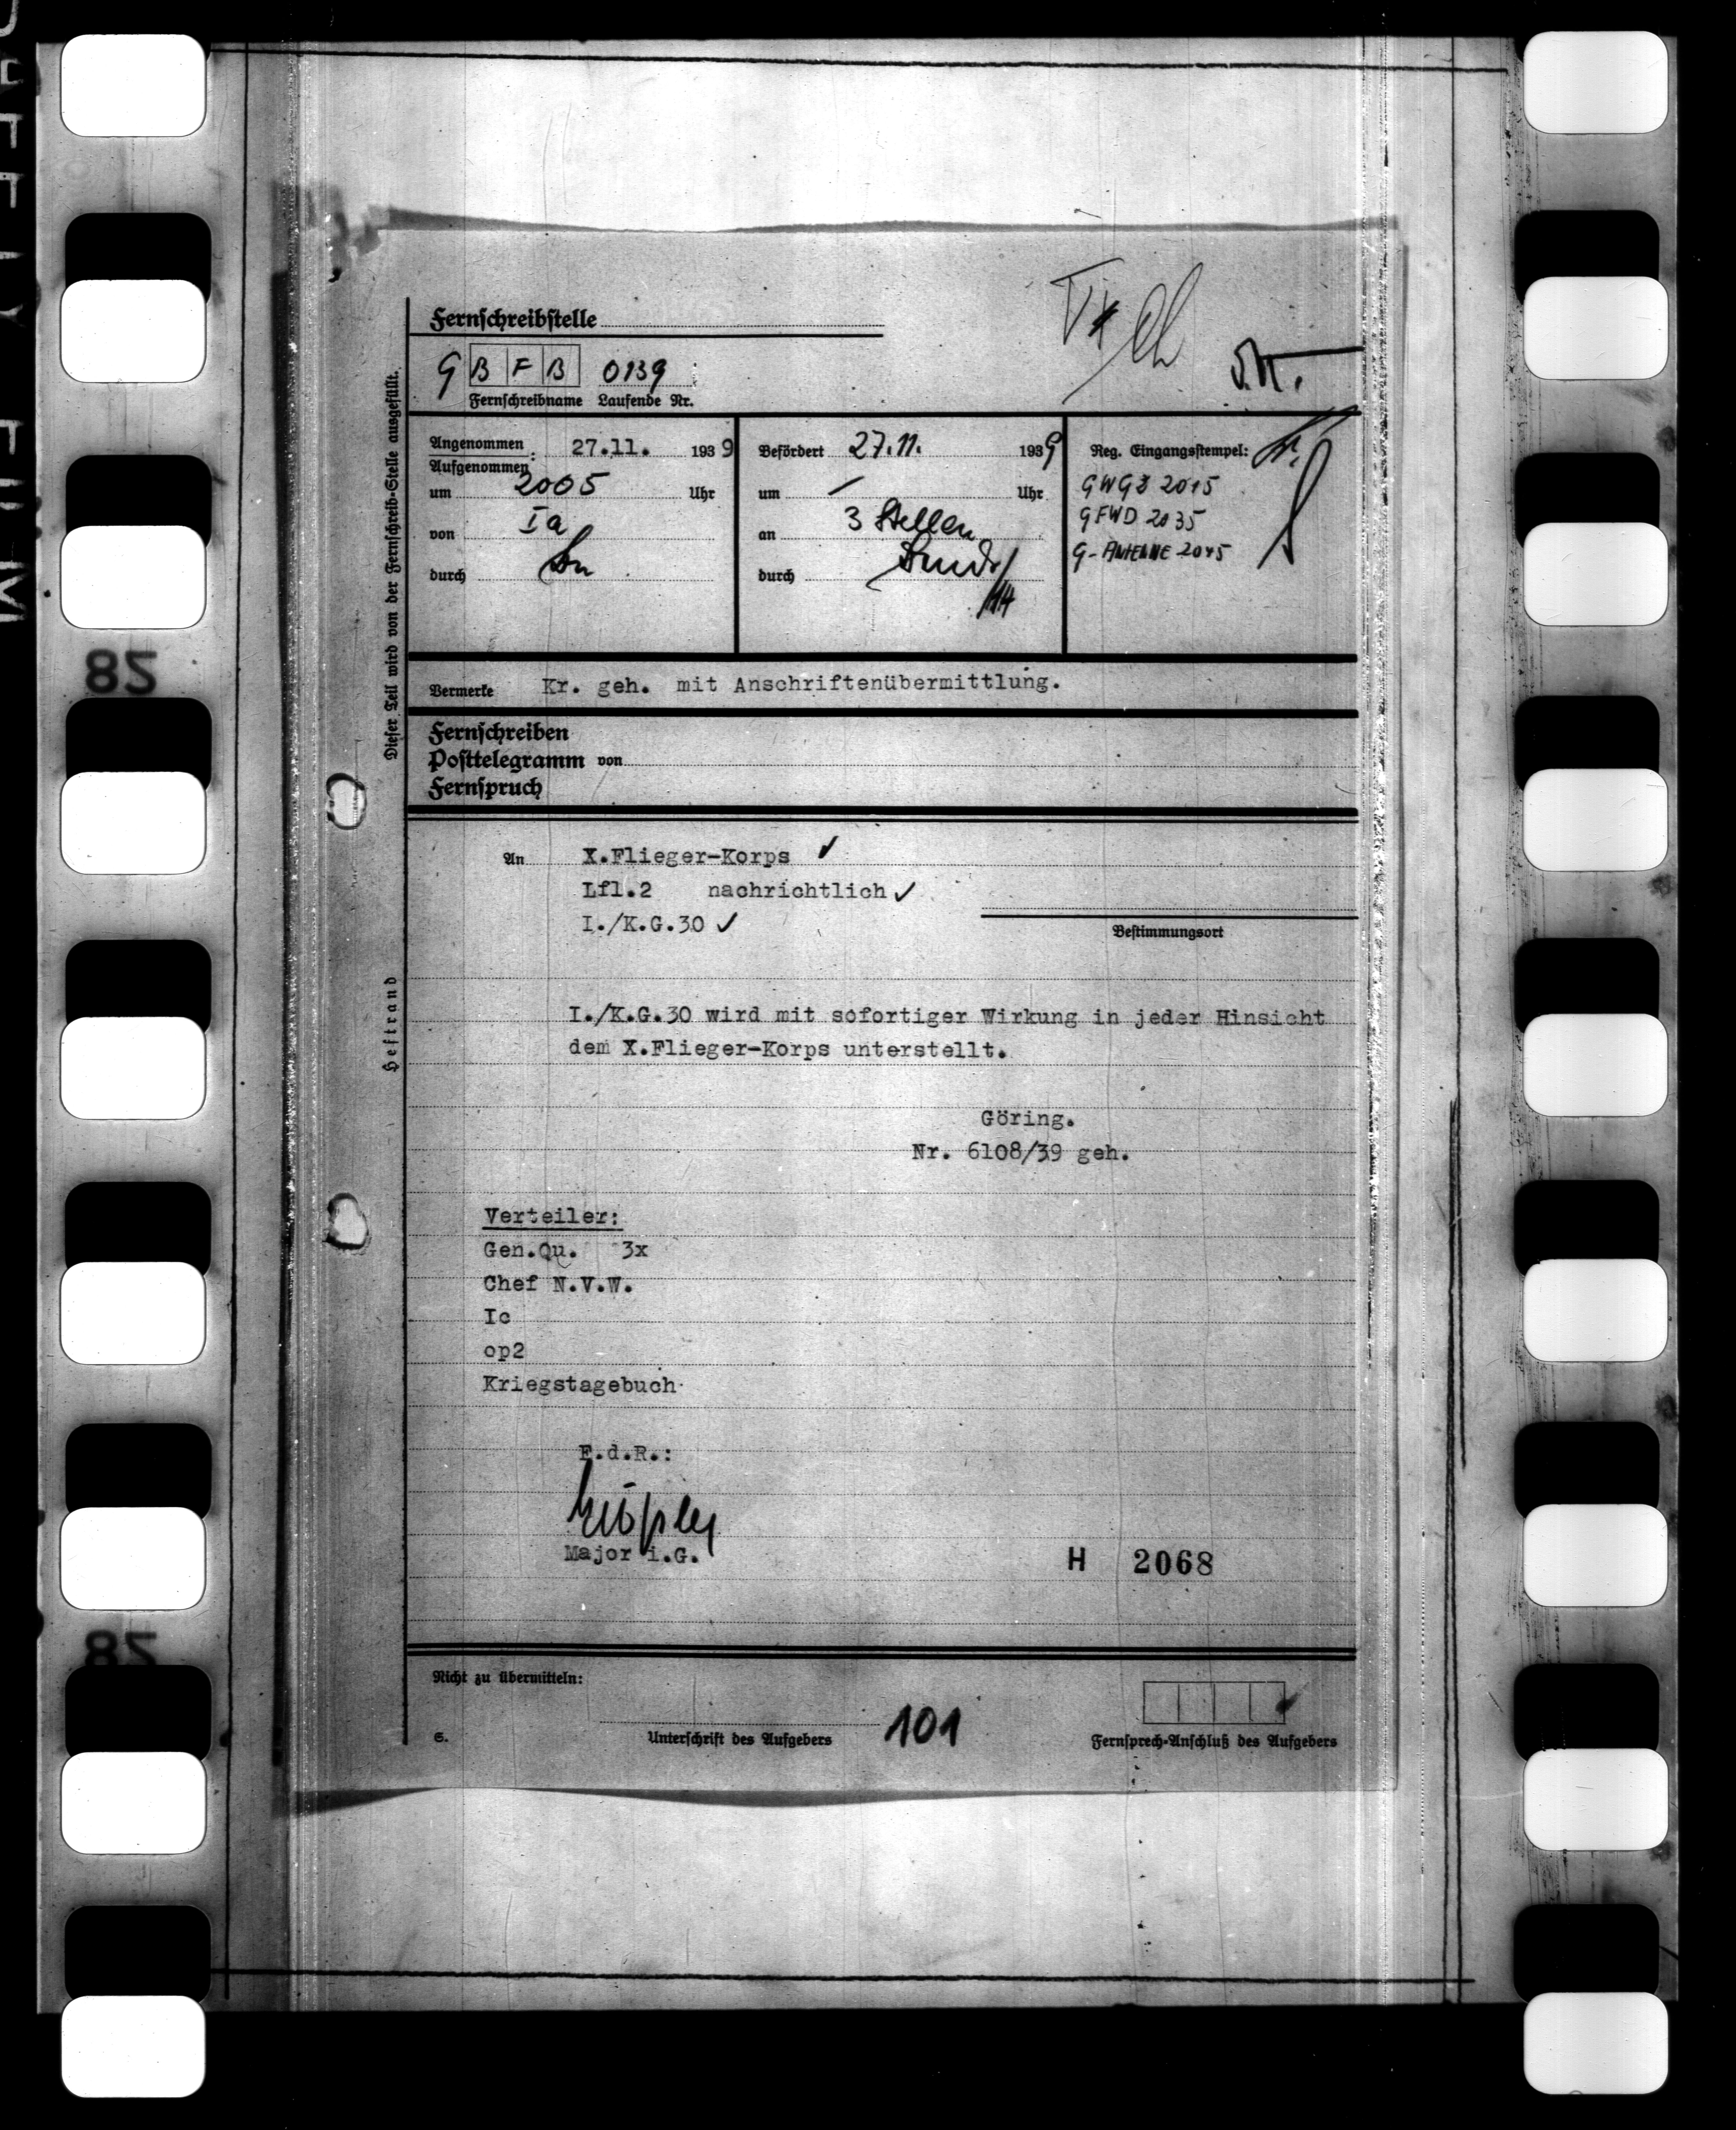 Fernschreibstelle
G B F B 0139
Fernschreibname Laufende Nr.
Angenommen
Aufgenommen: 27.11. 1939
um 2005 Uhr
von Ia
durch
Befördert 27.11. 1939
um — Uhr
an 3 Stellen
durch
Reg. Eingangsstempel:
GWGZ 2015
GFWD 2035
G-ANTENNE 2045
Dieser Teil wird von der Fernschreib-Stelle ausgefüllt.
Vermerke Kr. geh. mit Anschriftenübermittlung.
Fernschreiben
Posttelegramm von
Fernspruch
An X.Flieger-Korps ✓
Lfl.2 nachrichtlich ✓
I./K.G.30 ✓
Bestimmungsort
Heftrand
I./K.G.30 wird mit sofortiger Wirkung in jeder Hinsicht
dem X.Flieger-Korps unterstellt.
Göring.
Nr. 6108/39 geh.
Verteiler:
Gen.Qu. 3x
Chef N.V.W.
Ic
op2
Kriegstagebuch
F.d.R.:
Major i.G.
H 2068
Nicht zu übermitteln:
101
S.
Unterschrift des Aufgebers
Fernsprech-Anschluß des Aufgebers
82
82